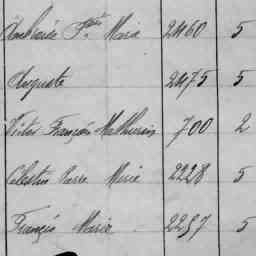 Marie 2460 5
Auguste 2475 5
Victor François Mathurin 700 2
Célestin Pierre Marie 2228 5
François Marie 2257 5